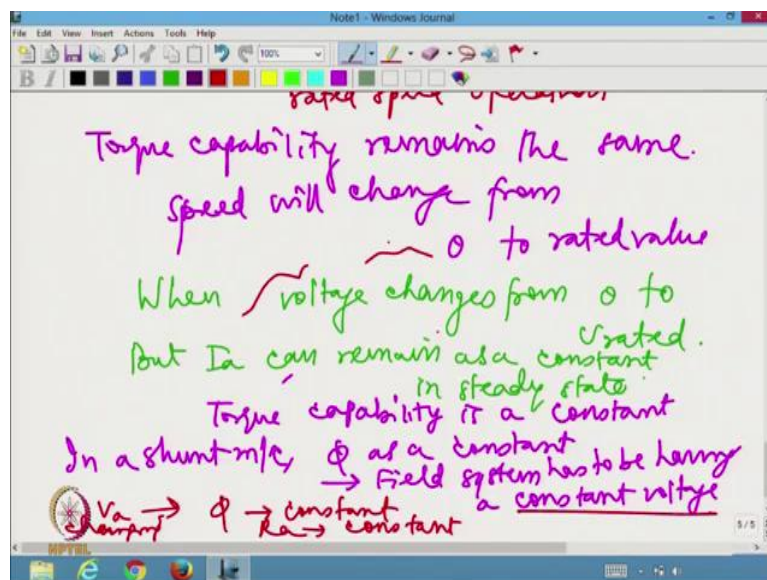 Note1 - Windows Journal
File Edit View Insert Actions Tools Help
100%
B I
rated speed operation
Torque capability remains the same.
speed will change from
0 to rated value
When voltage changes from 0 to
Vrated.
But Ia can remain as a constant
in steady state
Torque capability is a constant
In a shunt m/c, φ as a constant
→ Field system has to be having
a constant voltage
Va → φ → constant
Ra → constant
NPTEL
5/5